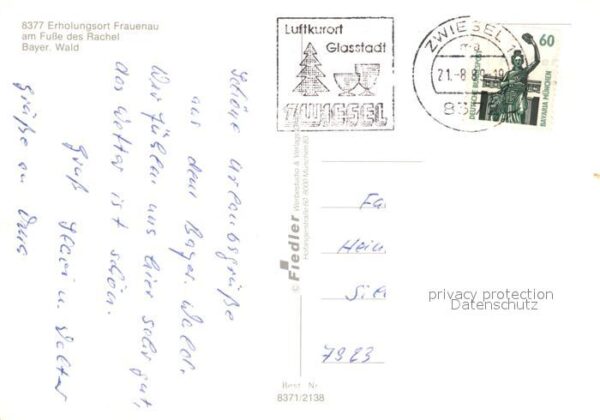 8377 Erholungsort Frauenau
am Fuße des Rachel
Bayer. Wald
Luftkurort
Glasstadt
ZWIESEL
ZWIESEL 1
21.-8.8
83
60
DEUTSCHE BUNDESPOST
BAVARIA MÜNCHEN
Schöne Urlaubsgrüße
aus dem Bayer. Wald.
Wir fühlen uns hier sehr gut,
das Wetter ist schön.
Gruß u. Walter
Grüße an
© Fiedler
Fa.
Hein
privacy protection
Datenschutz
7923
Best. Nr.
8371/2138